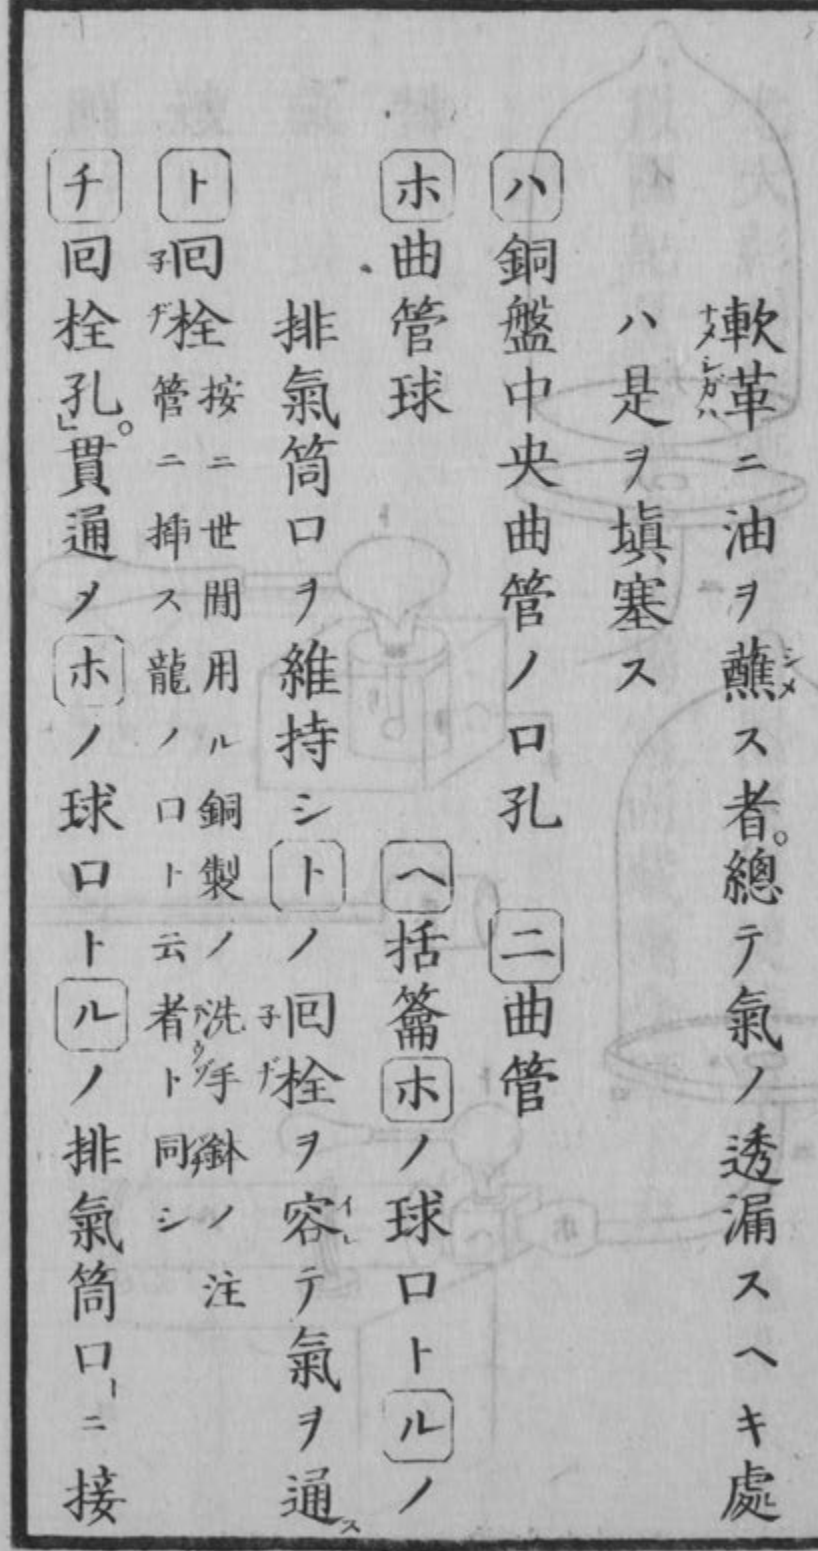 軟革ニ油ヲ蘸ス者。總テ氣ノ透漏スヘキ處
ハ是ヲ塡塞ス
ハ銅盤中央曲管ノ口孔　ニ曲管
ホ曲管球　ヘ括籥ホノ球口トルノ
排氣筒口ヲ維持シトノ回栓ヲ容テ氣ヲ通ス
ト回栓按ニ世間用ル銅製ノ洗手鉢ノ注
管ニ挿ス龍ノ口ト云者ト同シ
チ回栓孔。貫通メホノ球口トルノ排氣筒口ニ接